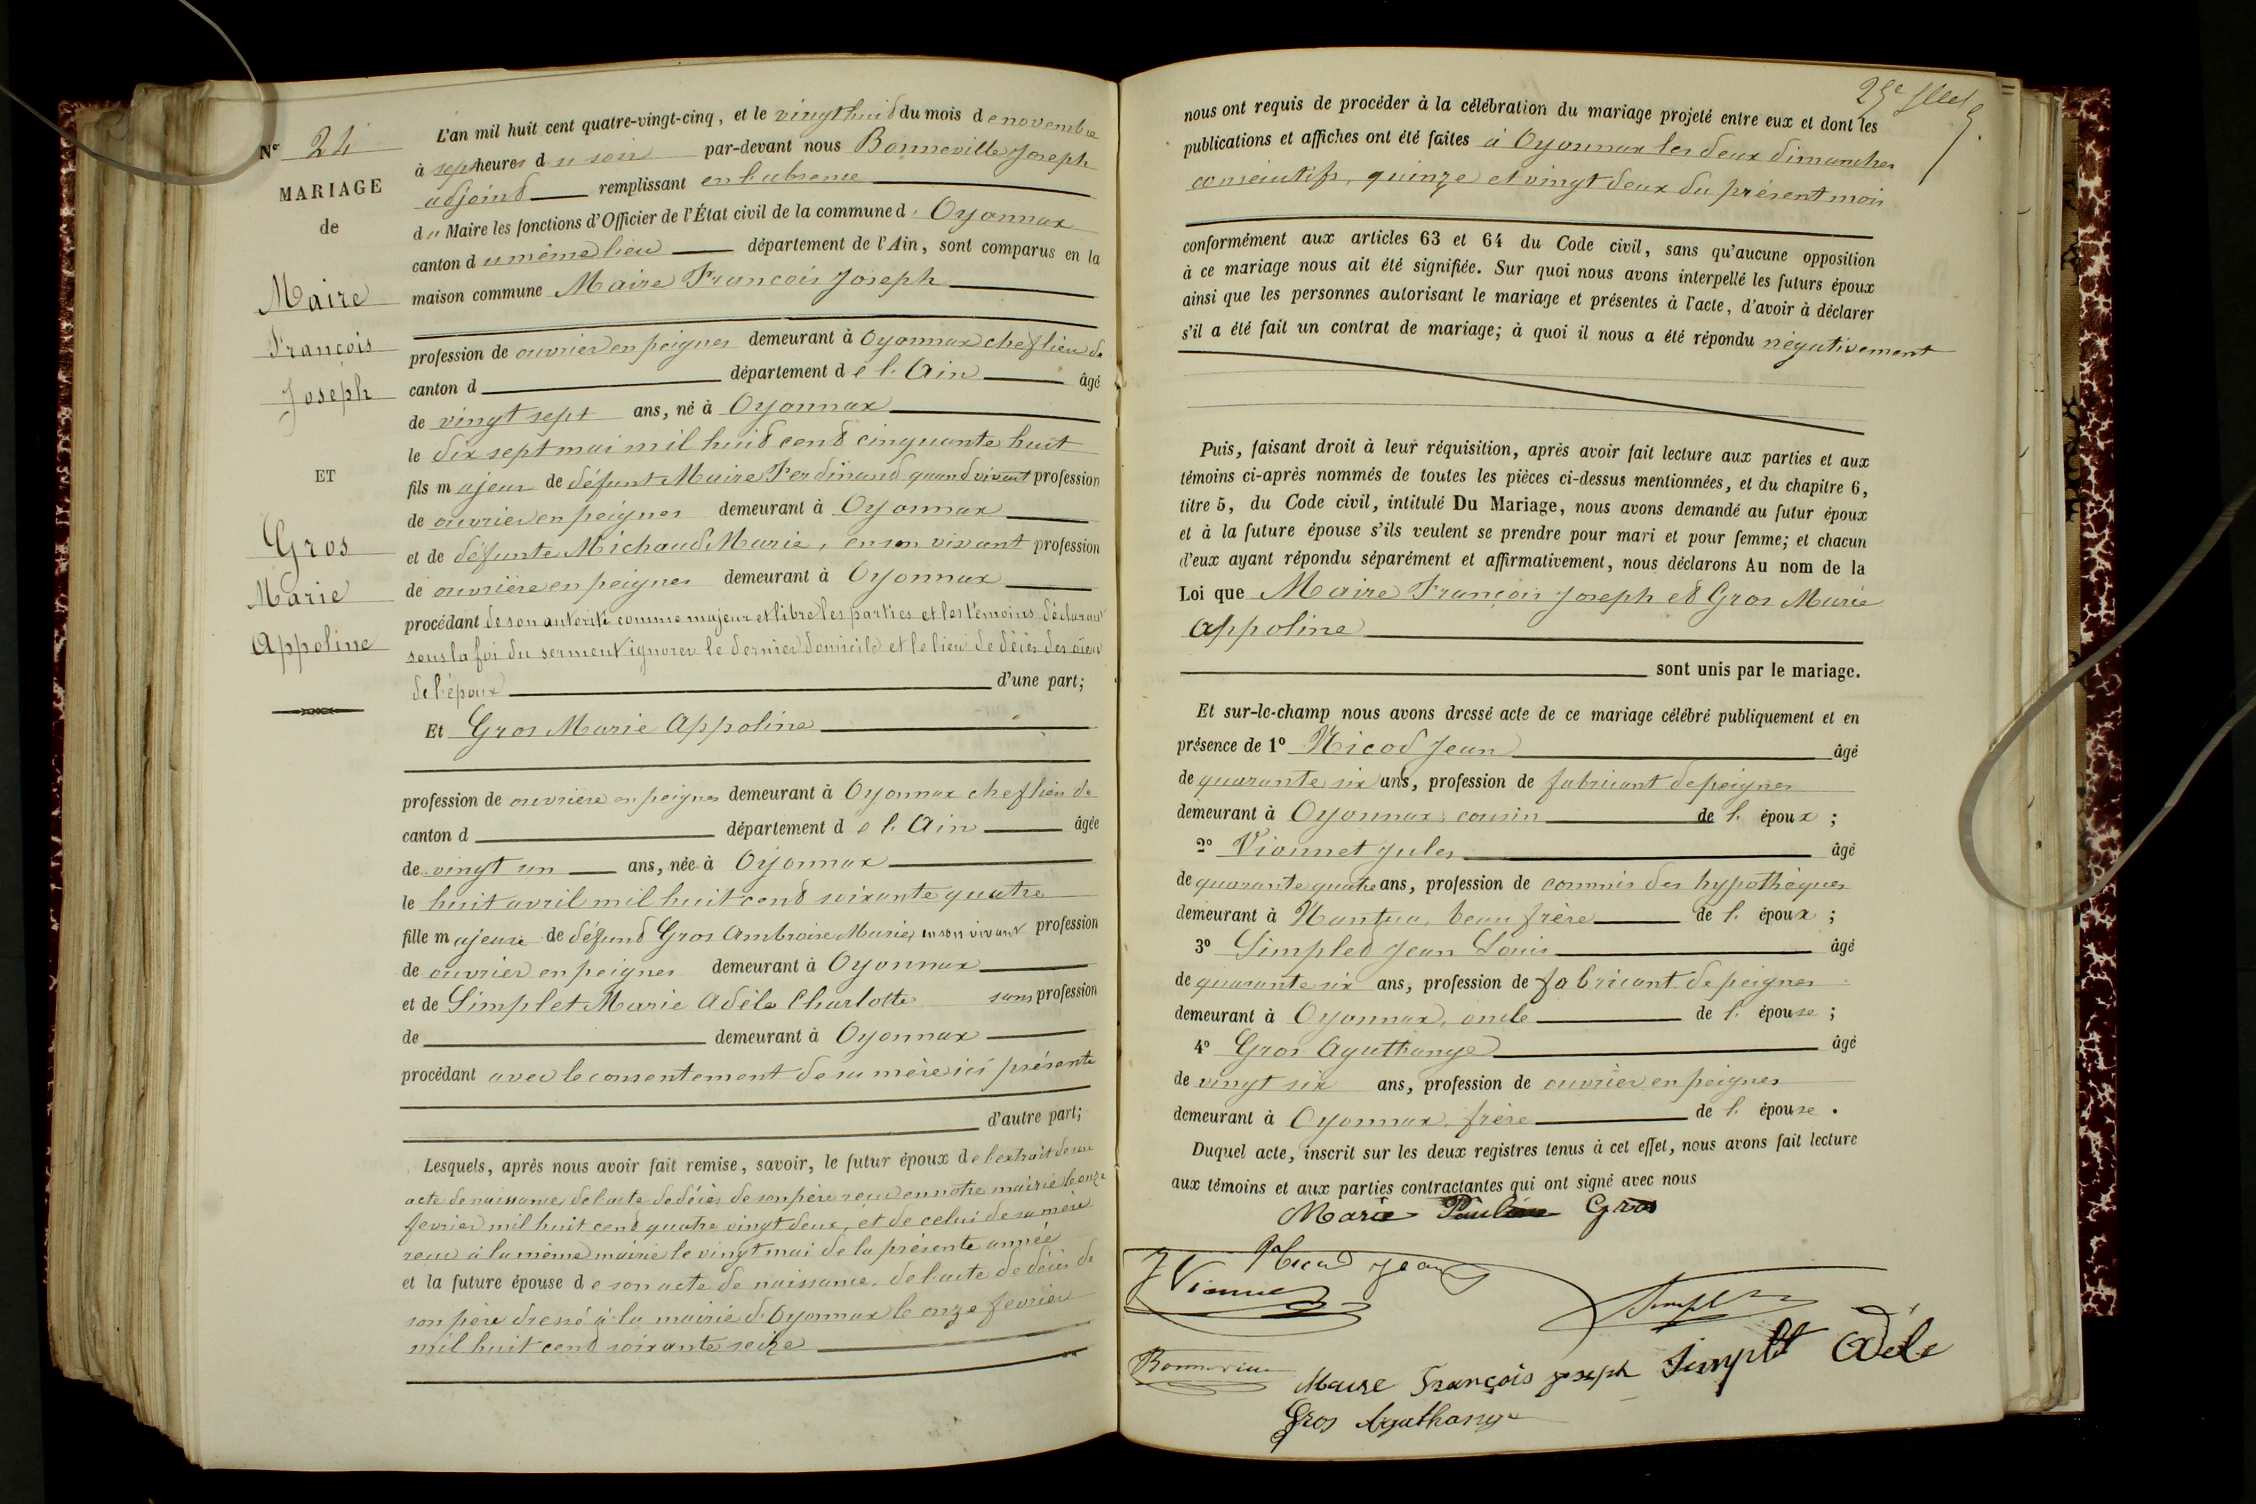 Nº 24
MARIAGE
de
Maire
François
Joseph
ET
Gros
Marie
Appoline
L'an mil huit cent quatre-vingt-cinq, et le vingt huit du mois de novembre
à sept heures du soir par-devant nous Bonneville Joseph
adjoint remplissant en l'absence
du Maire les fonctions d'Officier de l'État civil de la commune d' Oyonnax
canton du même lieu département de l'Ain, sont comparus en la
maison commune Maire François Joseph
profession de ouvrier en peignes demeurant à Oyonnax chef lieu de
canton d département de l'Ain âgé
de vingt sept ans, né à Oyonnax
le dix sept mai mil huit cent cinquante huit
fils majeur de défunt Maire Ferdinand quand vivant profession
de ouvrier en peignes demeurant à Oyonnax
et de défunte Michaud Marie, en son vivant profession
de ouvrière en peignes demeurant à Oyonnax
procédant de son autorité comme majeur et libre les parties et les témoins déclarant
sous la foi du serment ignorer le dernier domicile et le lieu de décès des aïeux
de l'époux d'une part;
Et Gros Marie Appoline
profession de ouvrière en peignes demeurant à Oyonnax chef lieu de
canton d département de l'Ain âgée
de vingt un ans, née à Oyonnax
le huit avril mil huit cent soixante quatre
fille majeure de défunt Gros Ambroise Marie, en son vivant profession
de ouvrier en peignes demeurant à Oyonnax
et de Simplet Marie Adèle Charlotte sans profession
de demeurant à Oyonnax
procédant avec le consentement de sa mère ici présente
d'autre part;
Lesquels, après nous avoir fait remise, savoir, le futur époux de l'extrait de son
acte de naissance, de l'acte de décès de son père reçu en notre mairie le onze
fevrier mil huit cent quatre vingt deux, et de celui de sa mère
reçu à la même mairie le vingt mai de la présente année
et la future épouse de son acte de naissance, de l'acte de décès de
son père dressé à la mairie d'Oyonnax le onze fevrier
mil huit cent soixante seize
nous ont requis de procéder à la célébration du mariage projeté entre eux et dont les
publications et affiches ont été faites à Oyonnax les deux dimanches
consécutifs, quinze et vingt deux du présent mois
conformément aux articles 63 et 64 du Code civil, sans qu'aucune opposition
à ce mariage nous ait été signifiée. Sur quoi nous avons interpellé les futurs époux
ainsi que les personnes autorisant le mariage et présentes à l'acte, d'avoir à déclarer
s'il a été fait un contrat de mariage; à quoi il nous a été répondu négativement
Puis, faisant droit à leur réquisition, après avoir fait lecture aux parties et aux
témoins ci-après nommés de toutes les pièces ci-dessus mentionnées, et du chapitre 6,
titre 5, du Code civil, intitulé Du Mariage, nous avons demandé au futur époux
et à la future épouse s'ils veulent se prendre pour mari et pour femme; et chacun
d'eux ayant répondu séparément et affirmativement, nous déclarons Au nom de la
Loi que Maire François Joseph et Gros Marie
Appoline
sont unis par le mariage.
Et sur-le-champ nous avons dressé acte de ce mariage célébré publiquement et en
présence de 1º Nicod Jean âgé
de quarante six ans, profession de fabricant de peignes
demeurant à Oyonnax, cousin de l' époux ;
2º Vionnet Jules âgé
de quarante quatre ans, profession de commis des hypothèques
demeurant à Nantua, beau frère de l' époux ;
3º Simplet Jean Louis âgé
de quarante six ans, profession de fabricant de peignes
demeurant à Oyonnax, oncle de l' épouse ;
4º Gros Agathange âgé
de vingt six ans, profession de ouvrier en peignes
demeurant à Oyonnax, frère de l' épouse .
Duquel acte, inscrit sur les deux registres tenus à cet effet, nous avons fait lecture
aux témoins et aux parties contractantes qui ont signé avec nous
Marie Pauline Gros
J Vionnet Nicod Jean
Simplet
Bonneville Maire François joseph Simplet Adèle
Gros Agathange